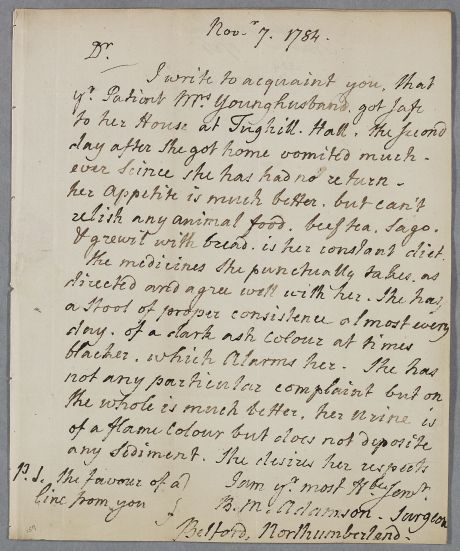 Nov.r 7. 1784.
Dr.
I write to acquaint you, that
yr. Patient Mrs Younghusband, got safe
to her House at Tughill. Hall. the second
day after she got home vomited much -
ever Scince she has had no return -
her appetite is much better. but can't
relish any animal food. beef tea. Sago.
& grewil with bread. is her constant diet.
the medicines she punctually takes. as
directed and agree well with her. She has
a Stool of proper consistence almost every
day. of a dark ash Colour at times
blacker. which Alarms her. She has
not any particular complaint but on
the whole is much better. her urine is
of a flame Colour but does not deposite
any Sediment. She desires her respects
P.S. the favour of a I am yr. most Hbe Servt.
line from you B. N. Adamson. Surgeon
Belford. Northumberland.